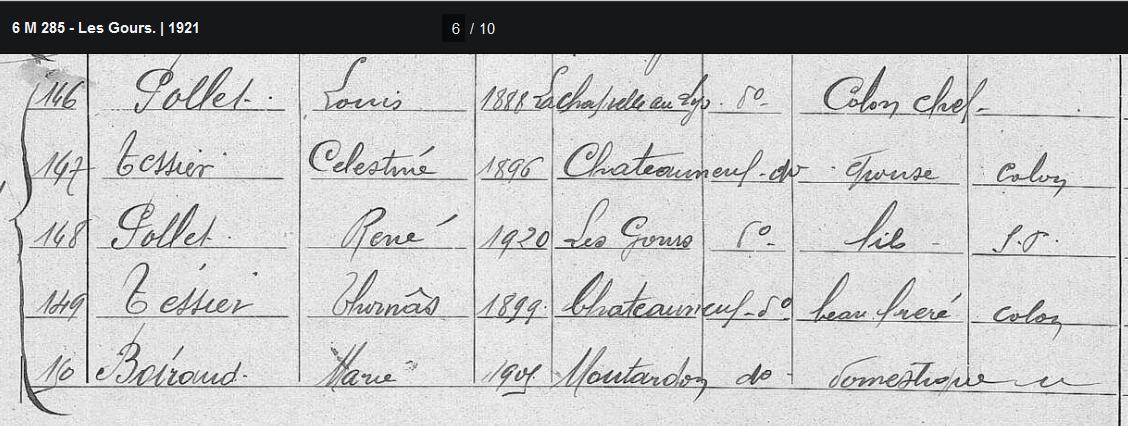 6 M 285 - Les Gours. | 1921 6 / 10
146 Pollet Louis 1888 Lachapelle au Lys do Colon chef
147 Tessier Celestine 1896 Chateauneuf do Epouse colon
148 Pollet René 1920 Les Gours do fils S.P.
149 Tessier Thomas 1899 Chateauneuf do beau frere colon
Boiraud Marie Moutardon do domestique